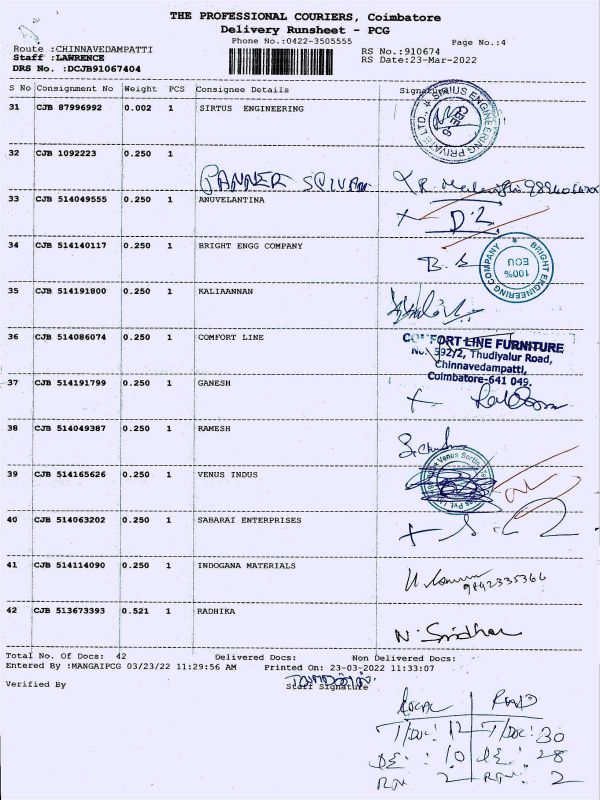 THE PROFESSIONAL COURIERS, Coimbatore
Delivery Runsheet - PCG
Phone No.:0422-3505555
Page No.:4
Route :CHINNAVEDAMPATTI
RS No.:910674
Staff :LAWRENCE
RS Date:23-Mar-2022
DRS No. :DCJB91067404
S No Consignment No Weight PCS Consignee Details Signature
31 CJB 87996992 0.002 1 SIRTUS ENGINEERING
SIRIUS ENGINEERING PRIVATE LTD.,
32 CJB 1092223 0.250 1
PANNER SELVAM
33 CJB 514049555 0.250 1 ANUVELANTINA
D.2
34 CJB 514140117 0.250 1 BRIGHT ENGG COMPANY
B. S
BRIGHT ENGINEERING COMPANY
100%
EOU
35 CJB 514191800 0.250 1 KALIAANNAN
36 CJB 514086074 0.250 1 COMFORT LINE
COMFORT LINE FURNITURE
No. 592/2, Thudiyalur Road,
Chinnavedampatti,
Coimbatore-641 049.
37 CJB 514191799 0.250 1 GANESH
38 CJB 514049387 0.250 1 RAMESH
39 CJB 514165626 0.250 1 VENUS INDUS
40 CJB 514063202 0.250 1 SABARAI ENTERPRISES
41 CJB 514114090 0.250 1 INDOGANA MATERIALS
9842335366
42 CJB 513673393 0.521 1 RADHIKA
N. Sridhar
Total No. Of Docs: 42 Delivered Docs: Non Delivered Docs:
Entered By :MANGAIPCG 03/23/22 11:29:56 AM Printed On: 23-03-2022 11:33:07
Verified By Staff Signature
LOCAL ROAD
T/DOC: 12 T/DOC: 30
DE: 10 DE: 28
RTN: 2 RTN: 2